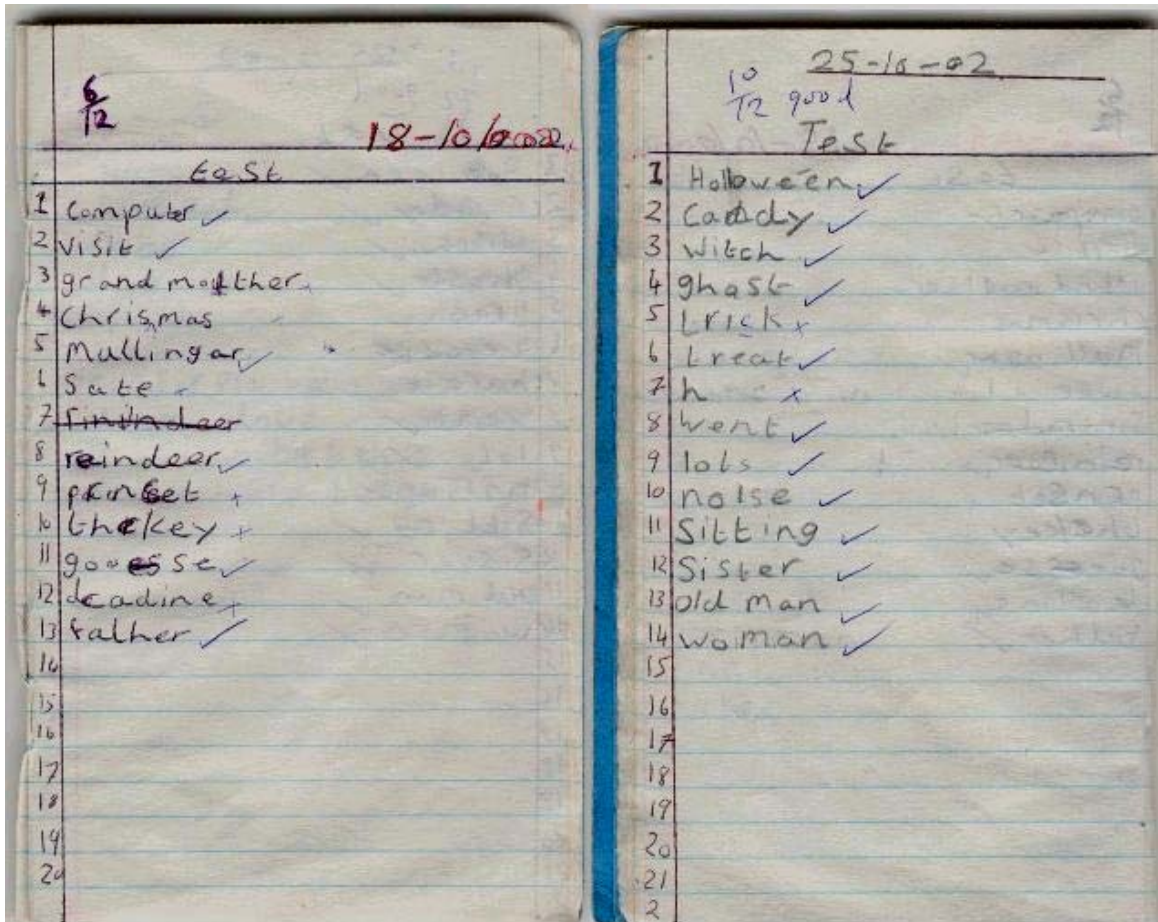 6/12
18-10/
test
1 Computer ✓
2 visit ✓
3 grand mother
4 Chrismas
5 Mullingar ✓
6 Sate
7
8 reindeer ✓
9 x
10 x
11 ✓
12 deadine x
13 father ✓
14
15
16
17
18
19
20
25-10-02
10/12 good
Test
1 Holloween ✓
2 Candy ✓
3 Witch ✓
4 ghost ✓
5 trick x
6 treat ✓
7 h x
8 went ✓
9 lots ✓
10 noise ✓
11 Sitting ✓
12 Sister ✓
13 old man ✓
14 woman ✓
15
16
17
18
19
20
21
2